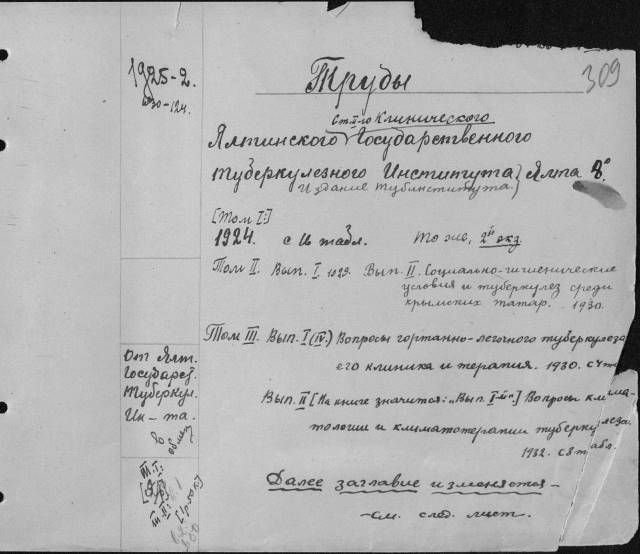 309
1925-2.
Труды
Ст. II-го Клинического
Ялтинского Государственного
Туберкулезного Института) Ялта 8°.
Издание Тубинститута.
[Том I:]
1924. с 16 табл. То же, 2й экз.
Том II. Вып. I. 1929. Вып. II. Социально-гигиенические
условия и туберкулез среди
крымских татар. 1930.
Том III. Вып. I (IV.) Вопросы гортанно-легочного туберкулеза
его клиника и терапия. 1930. с 4 т
Вып. II [На книге значится: „Вып. I-й"] Вопросы клима-
тологии и климатотерапии туберкулеза.
1932. с 8 табл.
Далее заглавие изменяется -
- см. след. лист.
От Ялт.
Государст.
Туберкул.
Ин-та.
в
обмен
III. I.